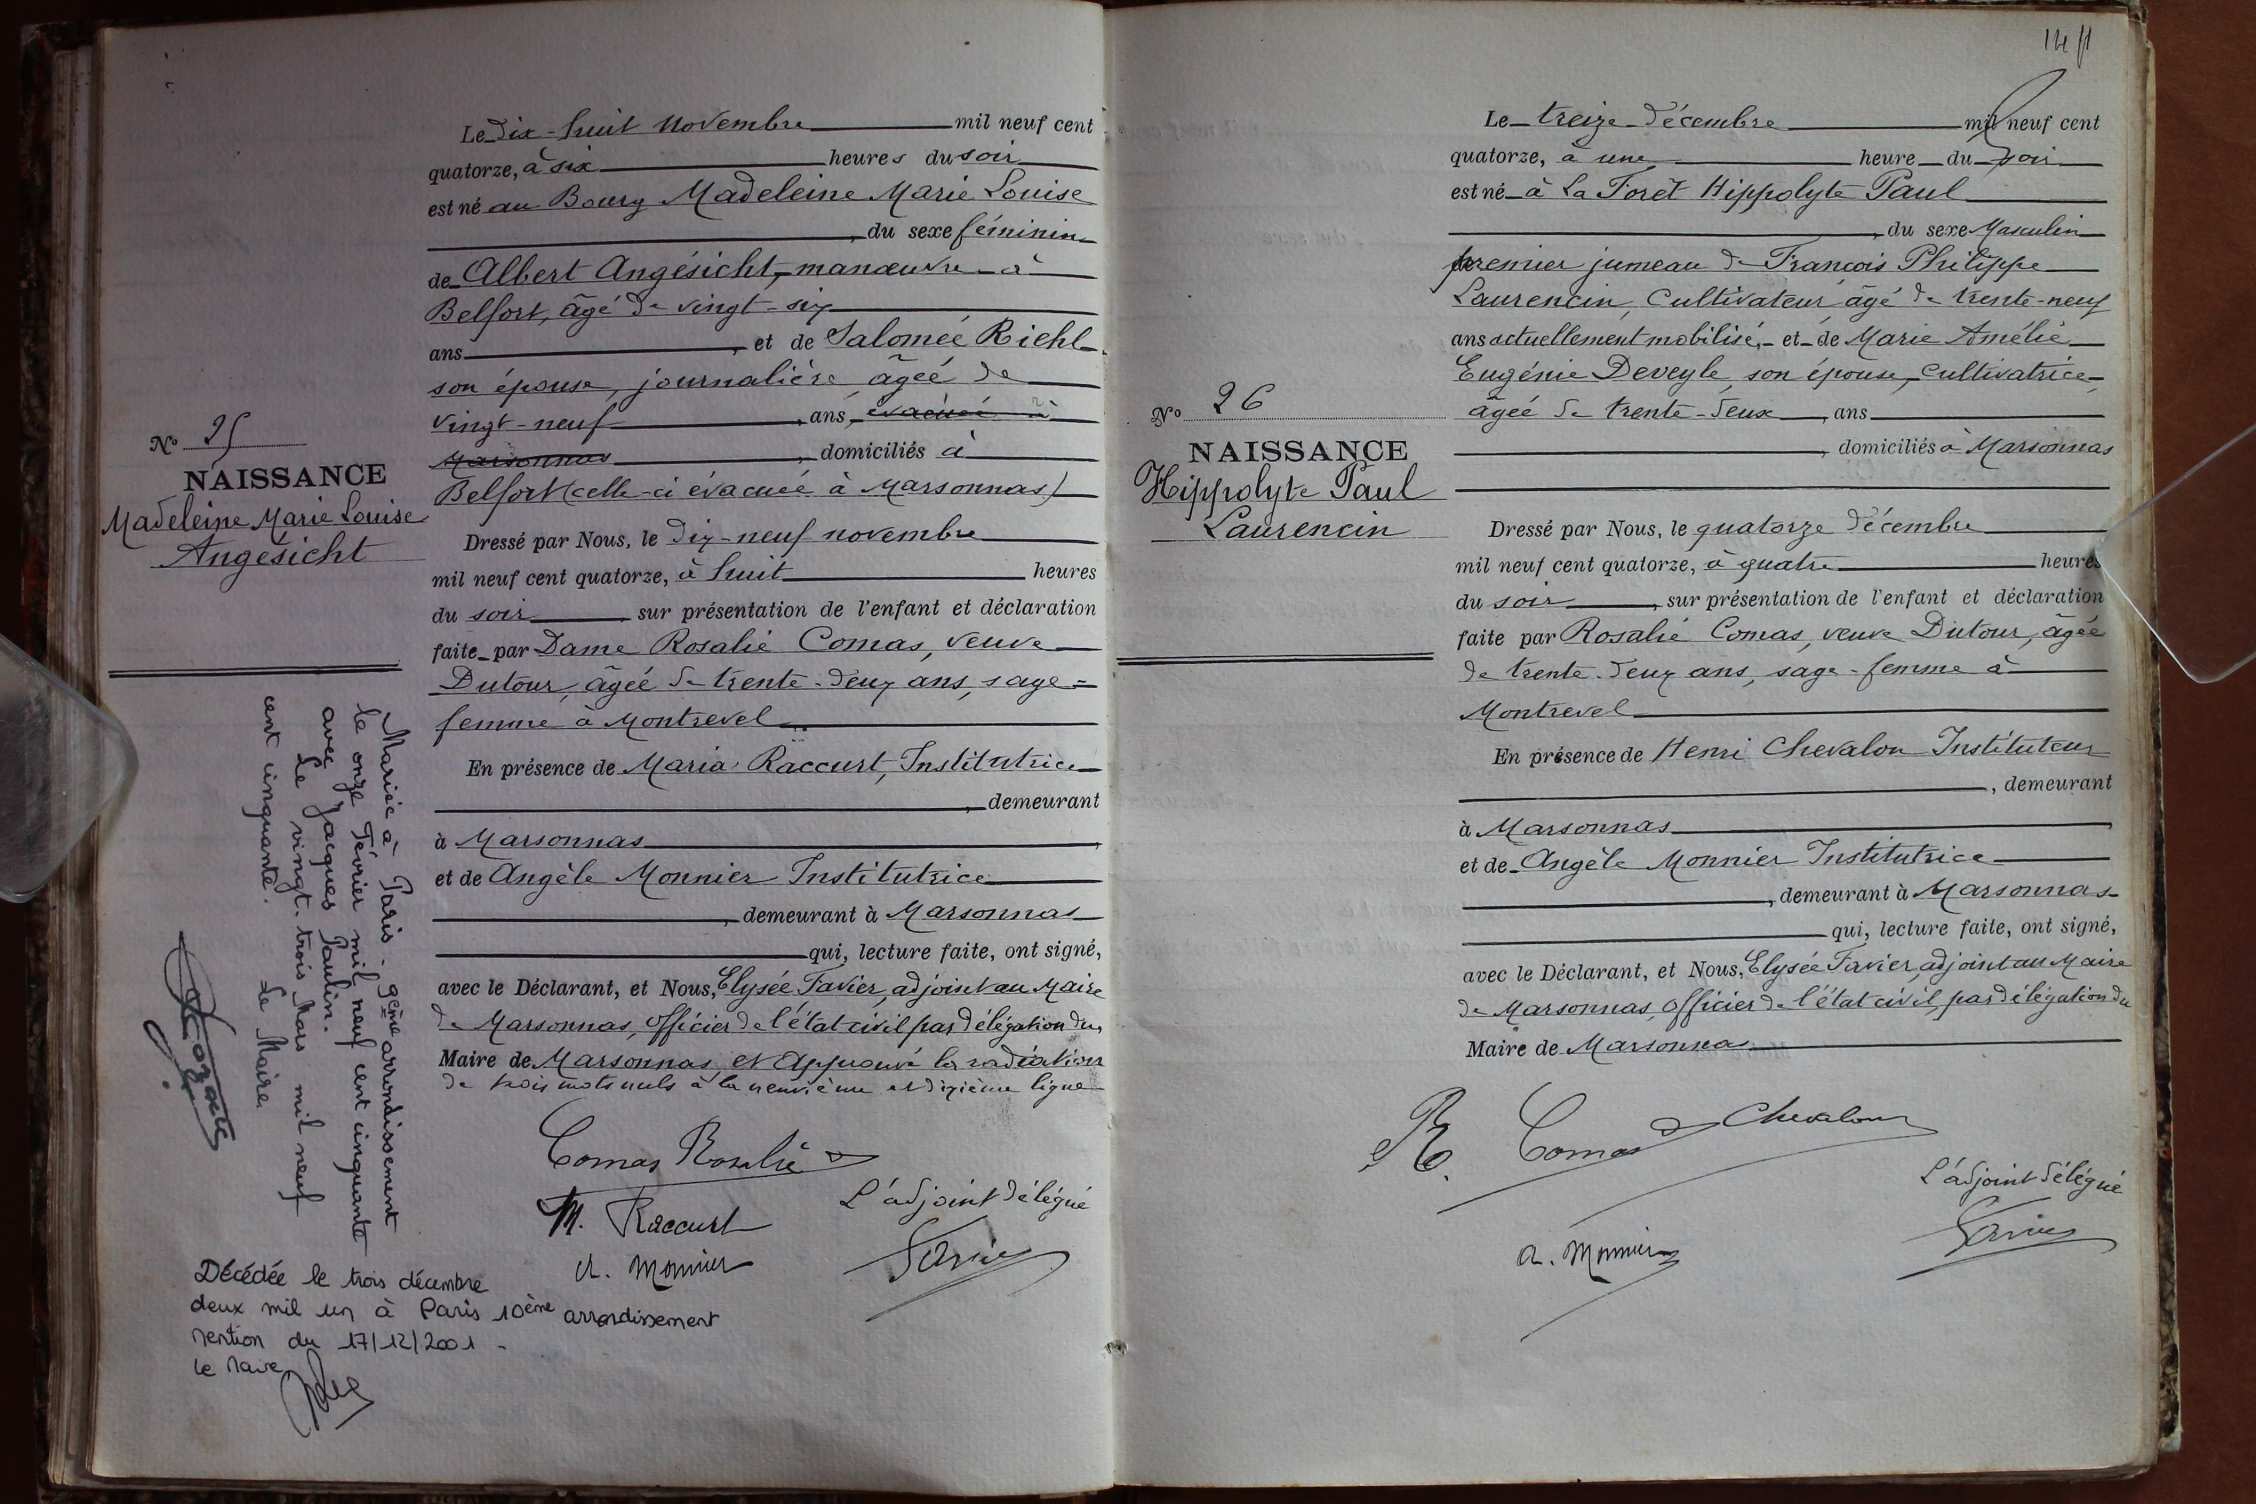 Le dix-huit novembre mil neuf cent
quatorze, à six heures du soir
est né au Bourg Madeleine Marie Louise
, du sexe féminin
de Albert Angésicht, manœuvre à
Belfort, âgé de vingt-six
ans, et de Salomée Riehl
son épouse, journalière âgée de
vingt-neuf, ans, évacuée à
Marsonnas, domiciliés à
Belfort (celle-ci évacuée à Marsonnas)
Dressé par Nous, le dix-neuf novembre
mil neuf cent quatorze, à huit heures
du soir sur présentation de l'enfant et déclaration
faite par Dame Rosalie Comas, veuve
Dutour, âgée de trente-deux ans, sage-
femme à Montrevel
En présence de Maria Raccurt, Institutrice
, demeurant
à Marsonnas,
et de Angèle Monnier Institutrice
, demeurant à Marsonnas
qui, lecture faite, ont signé,
avec le Déclarant, et Nous, Elysée Favier, adjoint au Maire
de Marsonnas, officier de l'état civil par délégation du
Maire de Marsonnas et approuvé la radiation
de trois mots nuls à la neuvième et dixième ligne
Comas Rosalie
M. Raccurt
L'adjoint délégué
A. Monnier
Favier
No 25
NAISSANCE
Madeleine Marie Louise
Angésicht
Mariée à Paris - 9ème arrondissement
le onze Février mil neuf cent cinquante
avec Jacques Paulin.
Le vingt-trois Mars mil neuf
cent cinquante.
Le Maire
Décédée le trois décembre
deux mil un à Paris 10ème arrondissement
mention du 17/12/2001 -
le Maire
Le treize décembre mil neuf cent
quatorze, à une heure du soir
est né à La Forêt Hippolyte Paul
, du sexe Masculin
premier jumeau de François Philippe
Laurencin, Cultivateur âgé de trente-neuf
ans actuellement mobilisé, et de Marie Amélie
Eugénie Deveyle son épouse, Cultivatrice
âgée de trente-deux, ans
, domiciliés à Marsonnas
Dressé par Nous, le quatorze décembre
mil neuf cent quatorze, à quatre heures
du soir, sur présentation de l'enfant et déclaration
faite par Rosalie Comas, veuve Dutour, âgée
de trente-deux ans, sage-femme à
Montrevel
En présence de Henri Chevalon Instituteur
, demeurant
à Marsonnas,
et de Angèle Monnier Institutrice
, demeurant à Marsonnas
qui, lecture faite, ont signé,
avec le Déclarant, et Nous, Elysée Favier, adjoint au Maire
de Marsonnas, officier de l'état civil, par délégation du
Maire de Marsonnas
R. Comas Chevalon
L'adjoint délégué
A. Monnier
Favier
No 26
NAISSANCE
Hippolyte Paul
Laurencin